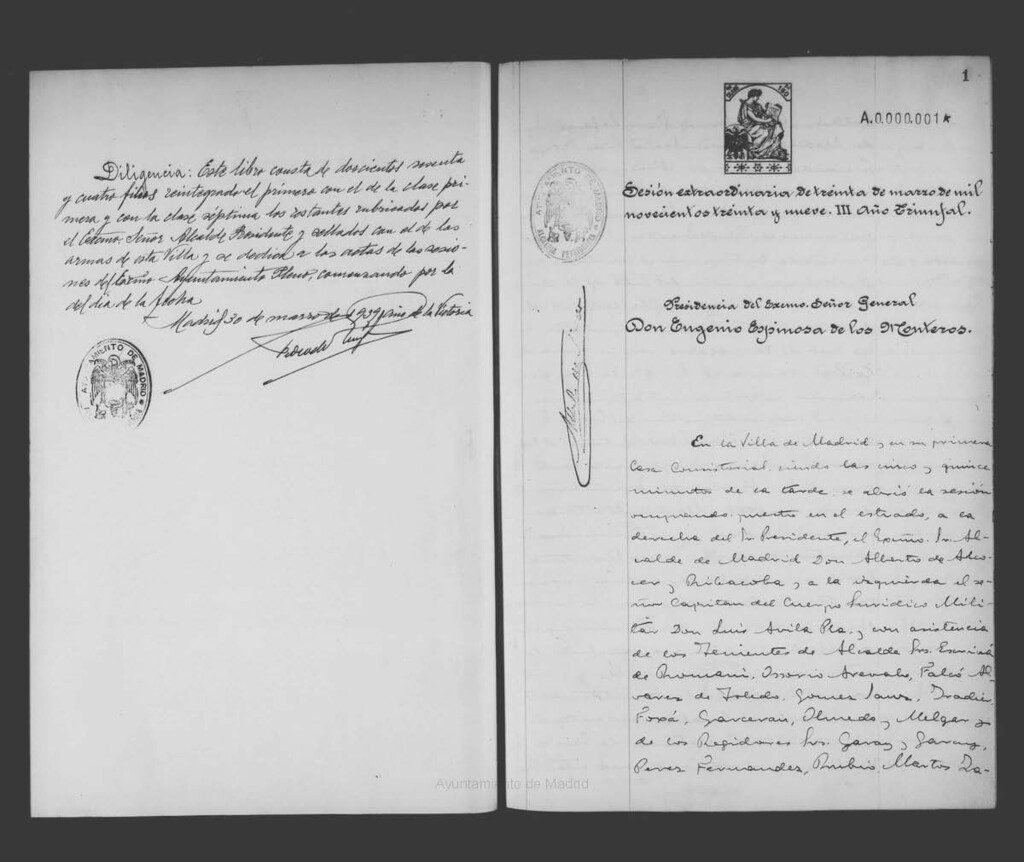 Diligencia: Este libro consta de doscientos noventa
y cuatro folios reintegrado el primero con el de la clase pri-
mera y con la clase séptima los restantes rubricados por
el Excmo. Señor Alcalde Presidente y sellados con el de las
armas de esta Villa y se dedica a las actas de las sesio-
nes del Excmo Ayuntamiento Pleno, comenzando por la
del día de la fecha
Madrid 30 de marzo de 1939 Año de la Victoria
AYUNTAMIENTO DE MADRID
1
A.0.000.001*
AYUNTAMIENTO DE MADRID
Sesión extraordinaria de treinta de marzo de mil
novecientos treinta y nueve. III Año Triunfal.
Presidencia del Excmo. Señor General
Don Eugenio Espinosa de los Monteros.
En la Villa de Madrid y en su primera
Casa Consistorial, siendo las cinco y quince
minutos de la tarde, se abrió la sesión
ocupando puesto en el estrado, a la
derecha del Sr Presidente, el Excmo. Sr. Al-
calde de Madrid Don Alberto de Alco-
cer y Ribacoba y a la izquierda el se-
ñor Capitan del Cuerpo Juridico Mili-
tar Don Luis Avila Pla, y con asistencia
de los Tenientes de Alcalde Srs. Escrivá
de Romani, Ossorio Arevalo, Falcó Al-
varez de Toledo, Gomez Sanz, Tradier,
Foxá, Garceran, Olmedo y Melgar y
de los Regidores Srs. Garay y Garay,
Perez Fernandez, Rubio, Martos Za-
Ayuntamiento de Madrid